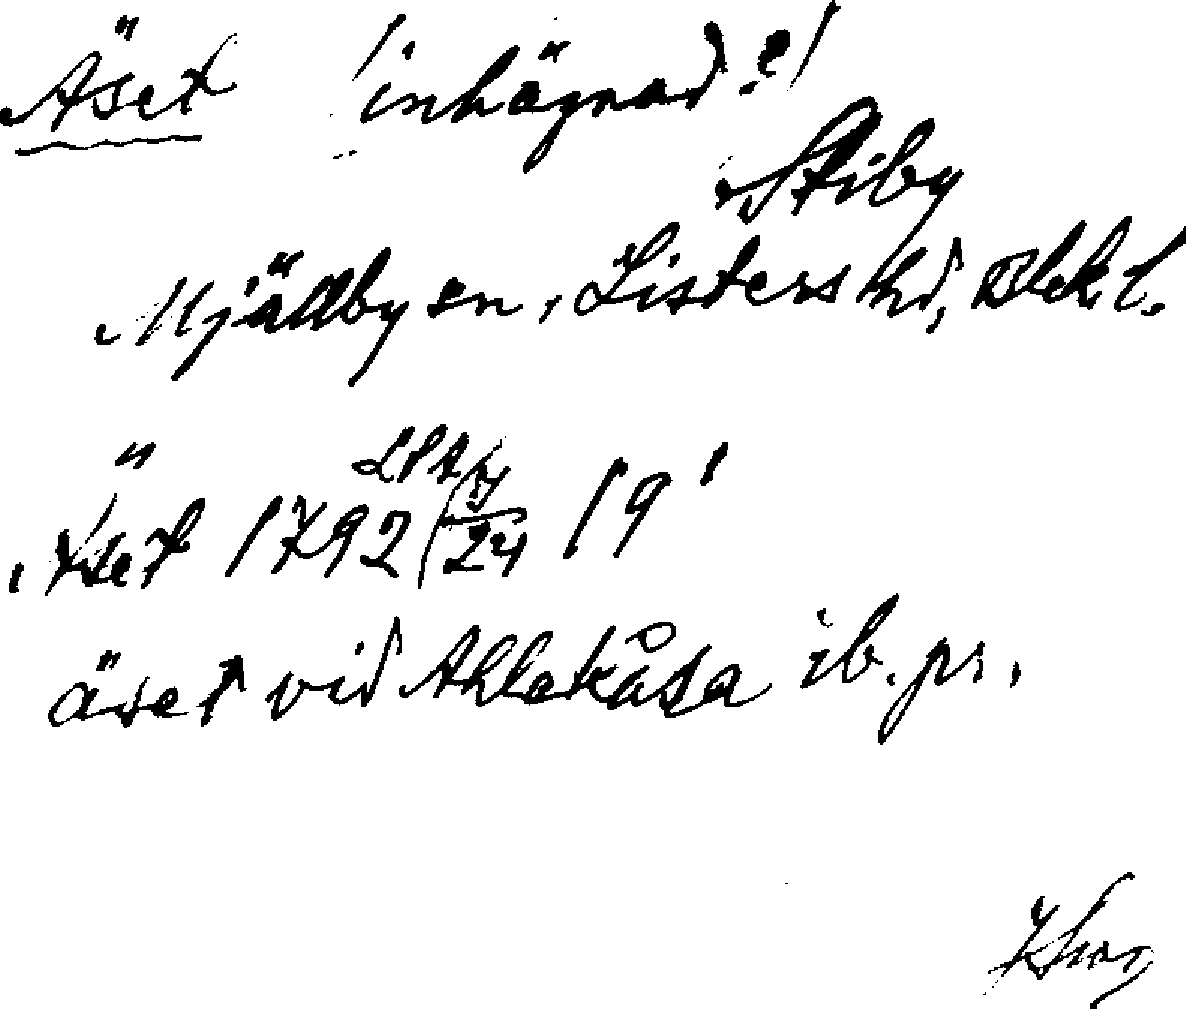 Äset /inhägnad?/
Stiby
Mjällby sn, Listers hd, Blek. l.
LSA
Äset 1792 (Y/24 19'
äset vid Ahlekåsa ib. pr.